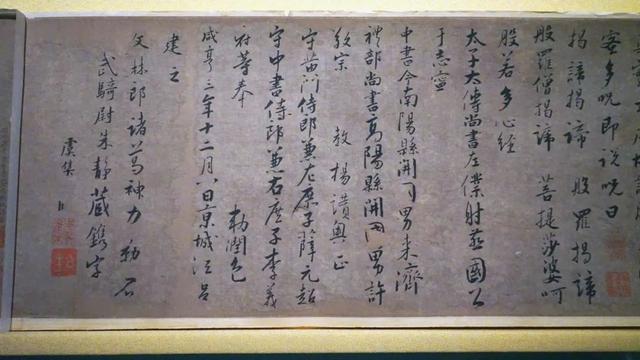 蜜多呪即説呪曰
揭諦揭諦 般羅揭諦
般羅僧揭諦 菩提莎婆呵
般若多心經
太子太傅尚書左僕射燕國公
于志寧
中書令南陽縣開國男来濟
禮部尚書高陽縣開國男許
敬宗
守黄門侍郎兼左庶子薛元超
守中書侍郎兼右庶子李義
府等奉 勅潤色
咸亨三年十二月八日京城法呂
建立
文林郎諸葛神力勒石
武騎尉朱静藏鐫字
虞集